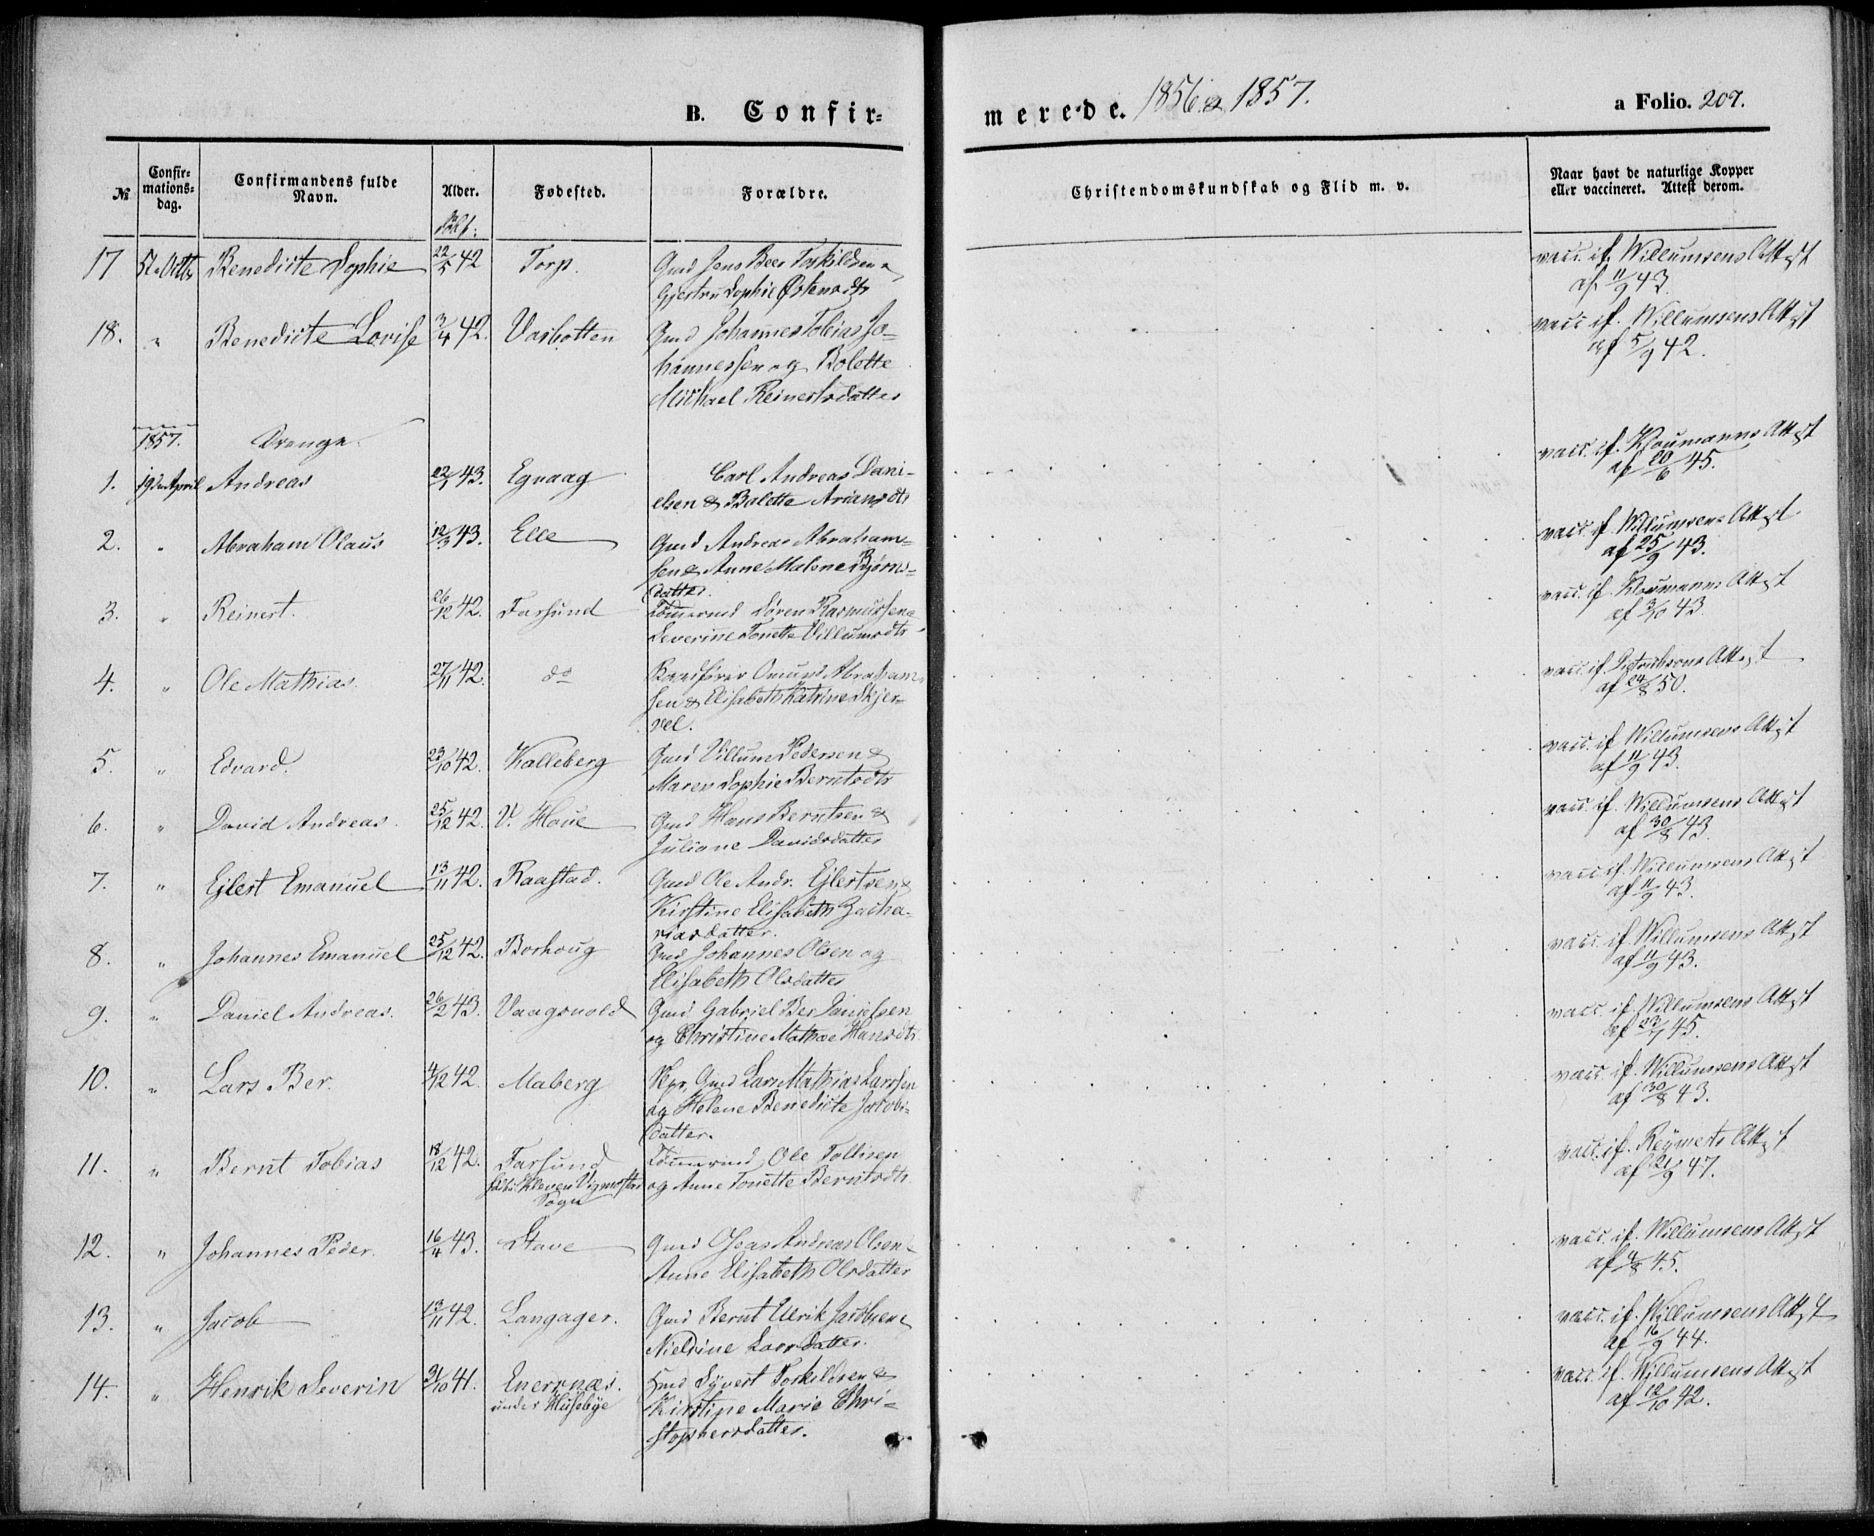 B. Confir=
merede. 1856 & 1857.
a Folio. 207.
№
Confir=
mations=
dag.
Confirmandens fulde
Navn.
Alder.
Fødested.
Forældre.
Christendomskundskab og Flid m. v.
Naar havt de naturlige Kopper
eller vaccineret. Attest derom.
17 5te Octbr Benedicte Sophie 22/5 42 Torp. Gmd Jens Beer Toskildsen &
Gjertru Sophie Østensdtr
vacc. if. Willumsens Attst
af 11/9 43.
18. " Benedicte Lovise 3/4 42. Vasbotten Gmd Johannes Tobias Jo-
hannessen og Bolette
Michael Reinertsdatter
vacc if. Willumsens Attst
af 5/9 42.
1857. Drenge.
1. 19de April Andreas 22/1 43. Egvaag Carl Andreas Dani-
elsen & Bolette Ariansdtr
vacc. if. Knoumanns Attst
af 20/6 45.
2. " Abraham Olaus 12/3 43. Elle Gmd Andreas Abraham-
sen & Anne Malene Bjørns-
datter.
vacc. if. Willumsens Attst
af 25/9 43.
3. " Reinert. 26/12 42. Farsund Tømmermd Søren Rasmussen &
Severine Tonette Villumsdtr
vacc. if. Attst
af 3/10 43.
4. " Ole Mathias. 27/11 42. do Omund Abraham-
sen & Elisabeth Katrine Skjer-
vel.
vacc. if. Attst
af 24/8 50.
5. " Edvard. 23/10 42. Kalleberg Gmd Villum Pedersen &
Maren Sophie Berntsdtr
vacc. if. Willumsens Attst
af 11/9 43.
6. " David Andreas. 25/12 42. V. Haue Gmd Hans Berntsen &
Juliane Davidsdatter
vacc. if. Willumsens Attst
af 30/8 43.
7. " Ejlert Emanuel 13/11 42. Raastad. Gmd Ole Andr. Ejlertsen &
Kirstine Elisabeth Zacha-
riasdatter.
vacc. if. Willumsens Attst
af 11/9 43.
8. " Johannes Emanuel 25/12 42. Borhoug Gmd Johannes Olsen og
Elisabeth Olsdatter
vacc. if. Willumsens Attst
af 11/9 43.
9. " Daniel Andreas. 26/2 43. Vaagsvold Gmd Gabriel Ber Danielsen
og Christine Mathae Hansdtr
vacc. if. Willumsens Attst
af 23/7 45.
10. " Lars Ber. 4/12 42. Maberg Gmd Lars Mathias Larssen
og Helene Benedicte Jacobs-
datter.
vacc. if. Willumsens Attst
af 30/8 43.
11. " Bernt Tobias 18/12 42. Farsund
Kleven Vigmostad
Sogn
Tømmermd Ole Tollisen
og Anne Tonette Berntsdtr.
vacc. if. Reymerts Attst
af 21/9 47.
12. " Johannes Peder. 16/4 43. Stave Gmd Oseas Andreas Olsen &
Anne Elisabeth Olsdatter
vacc. if. Willumsens Attst
af 4/8 45.
13. " Jacob 13/11 42. Langager. Gmd Bernt Ulrik Jacobsen &
Nielsine Larsdatter.
vacc. if. Willumsens Attst
af 16/9 44.
14. " Henrik Severin 31/10 41. Enernæs.
under Husebye
Hmd Syvert Toskildsen &
Kirstine Marie Chri-
stophersdatter.
vacc. if. Willumsens Attst
af 12/10 42.